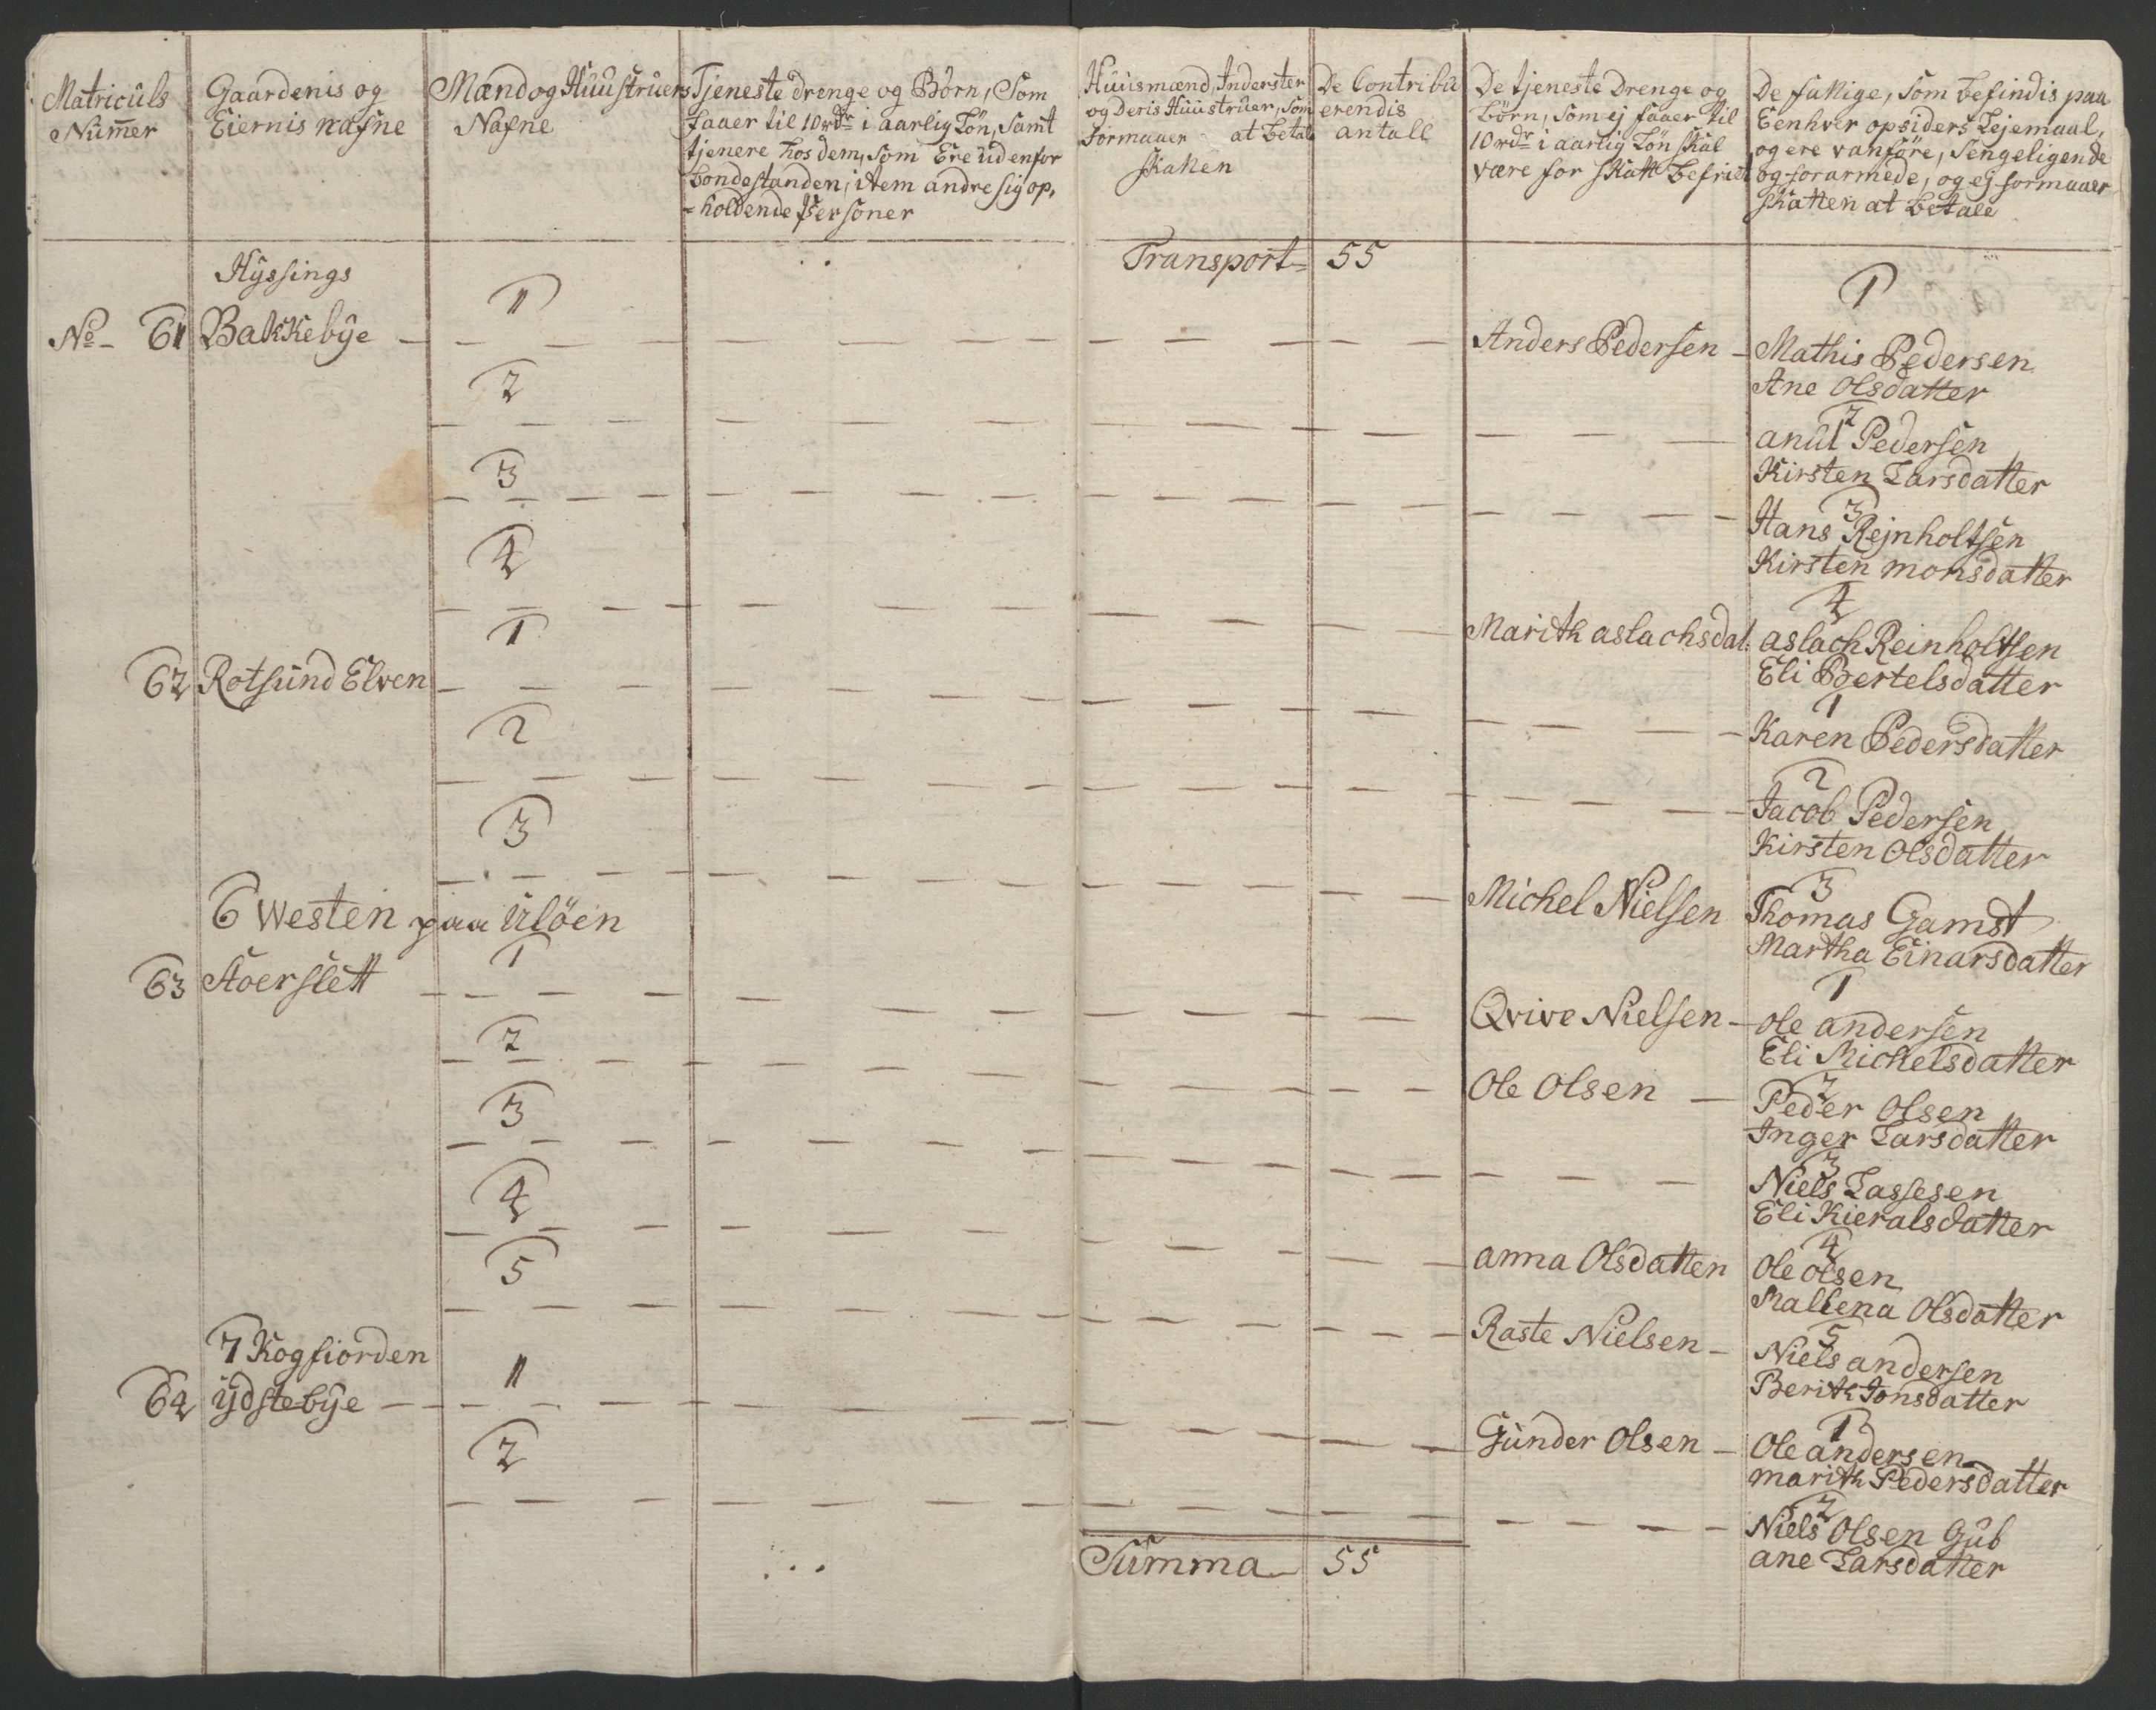 Matriculs
Nummer
Gaardenis og
Eiernis nafne
Mænd og Huustruers
Nafne
Tjeneste drenge og Börn, Som
faaer til 10 rdr i aarlig Lön, Samt
tjenere hos dem, som Ere uden for
bondestanden, item andre sig op,
=holdende Personer
Huusmænd, Inderster
og Deris Huustruer, Som
formaaer at betale
skatten
De Contribu
erendis
antall
De tjeneste Drenge og
börn, som ej faaer til
10 rdr i aarlig Lön skal
være for skatt befriet
De fattige, som befindis paa
Eenhver opsiders Lejemaal,
og ere vanföre, sengeligende
og forarmede, og ej formaaer
skatten at betale
Transport= 55
Hyssings
1
1
No- 61 Bakkebÿe
Anders Pedersen - Mathis Pedersen
Ane Olsdatter
2
2
anul Pedersen
Kirsten Larsdatter
3
3
Hans Rejnholtsen
Kirsten monsdatter
4
4
Marith aslachsdat: aslach Reinholtsen
Eli Bertelsdatter
1
1
62 Rotsund Elven
Karen Pedersdatter
2
2
Jacob Pedersen
Kirsten Olsdatter
3
3
Michel Nielsen Thomas Gamst
Martha Einarsdatter
6 Westen paa Ulöen
1
1
63 Stoerslett
Qvive Nielsen - ole andersen
Eli Michelsdatter
2
2
Ole Olsen - Peder Olsen
Inger Larsdatter
3
3
Niels Lassesen
Eli Kieralsdatter
4
4
anna Olsdatter Ole olsen
Mallena Olsdatter
5
5
Raste Nielsen - Niels andersen
Berith Jonsdatter
7 Kogfiorden
1
1
64 ÿdstebÿe
Gunder Olsen - Ole andersen
marith Pedersdatter
2
2
Niels Olsen Gub
ane Larsdatter
Summa 55